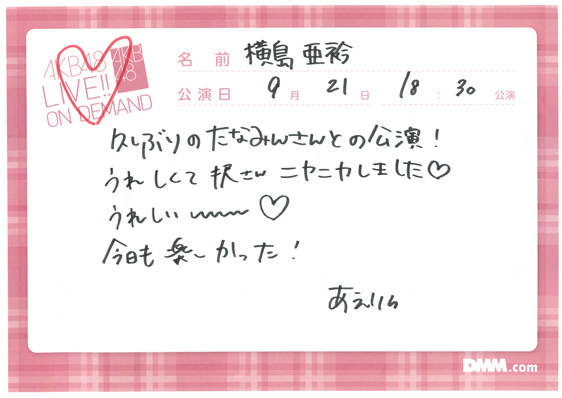 AKB48
LIVE!!
ON DEMAND
AKB
48
名前 横島亜衿
公演日 9月 21日 18:30 公演
久しぶりのたなみんさんとの公演！
うれしくて沢さん ニヤニヤしました♡
うれしい〜〜〜♡
今日も楽しかった！
あえりん
DMM.com